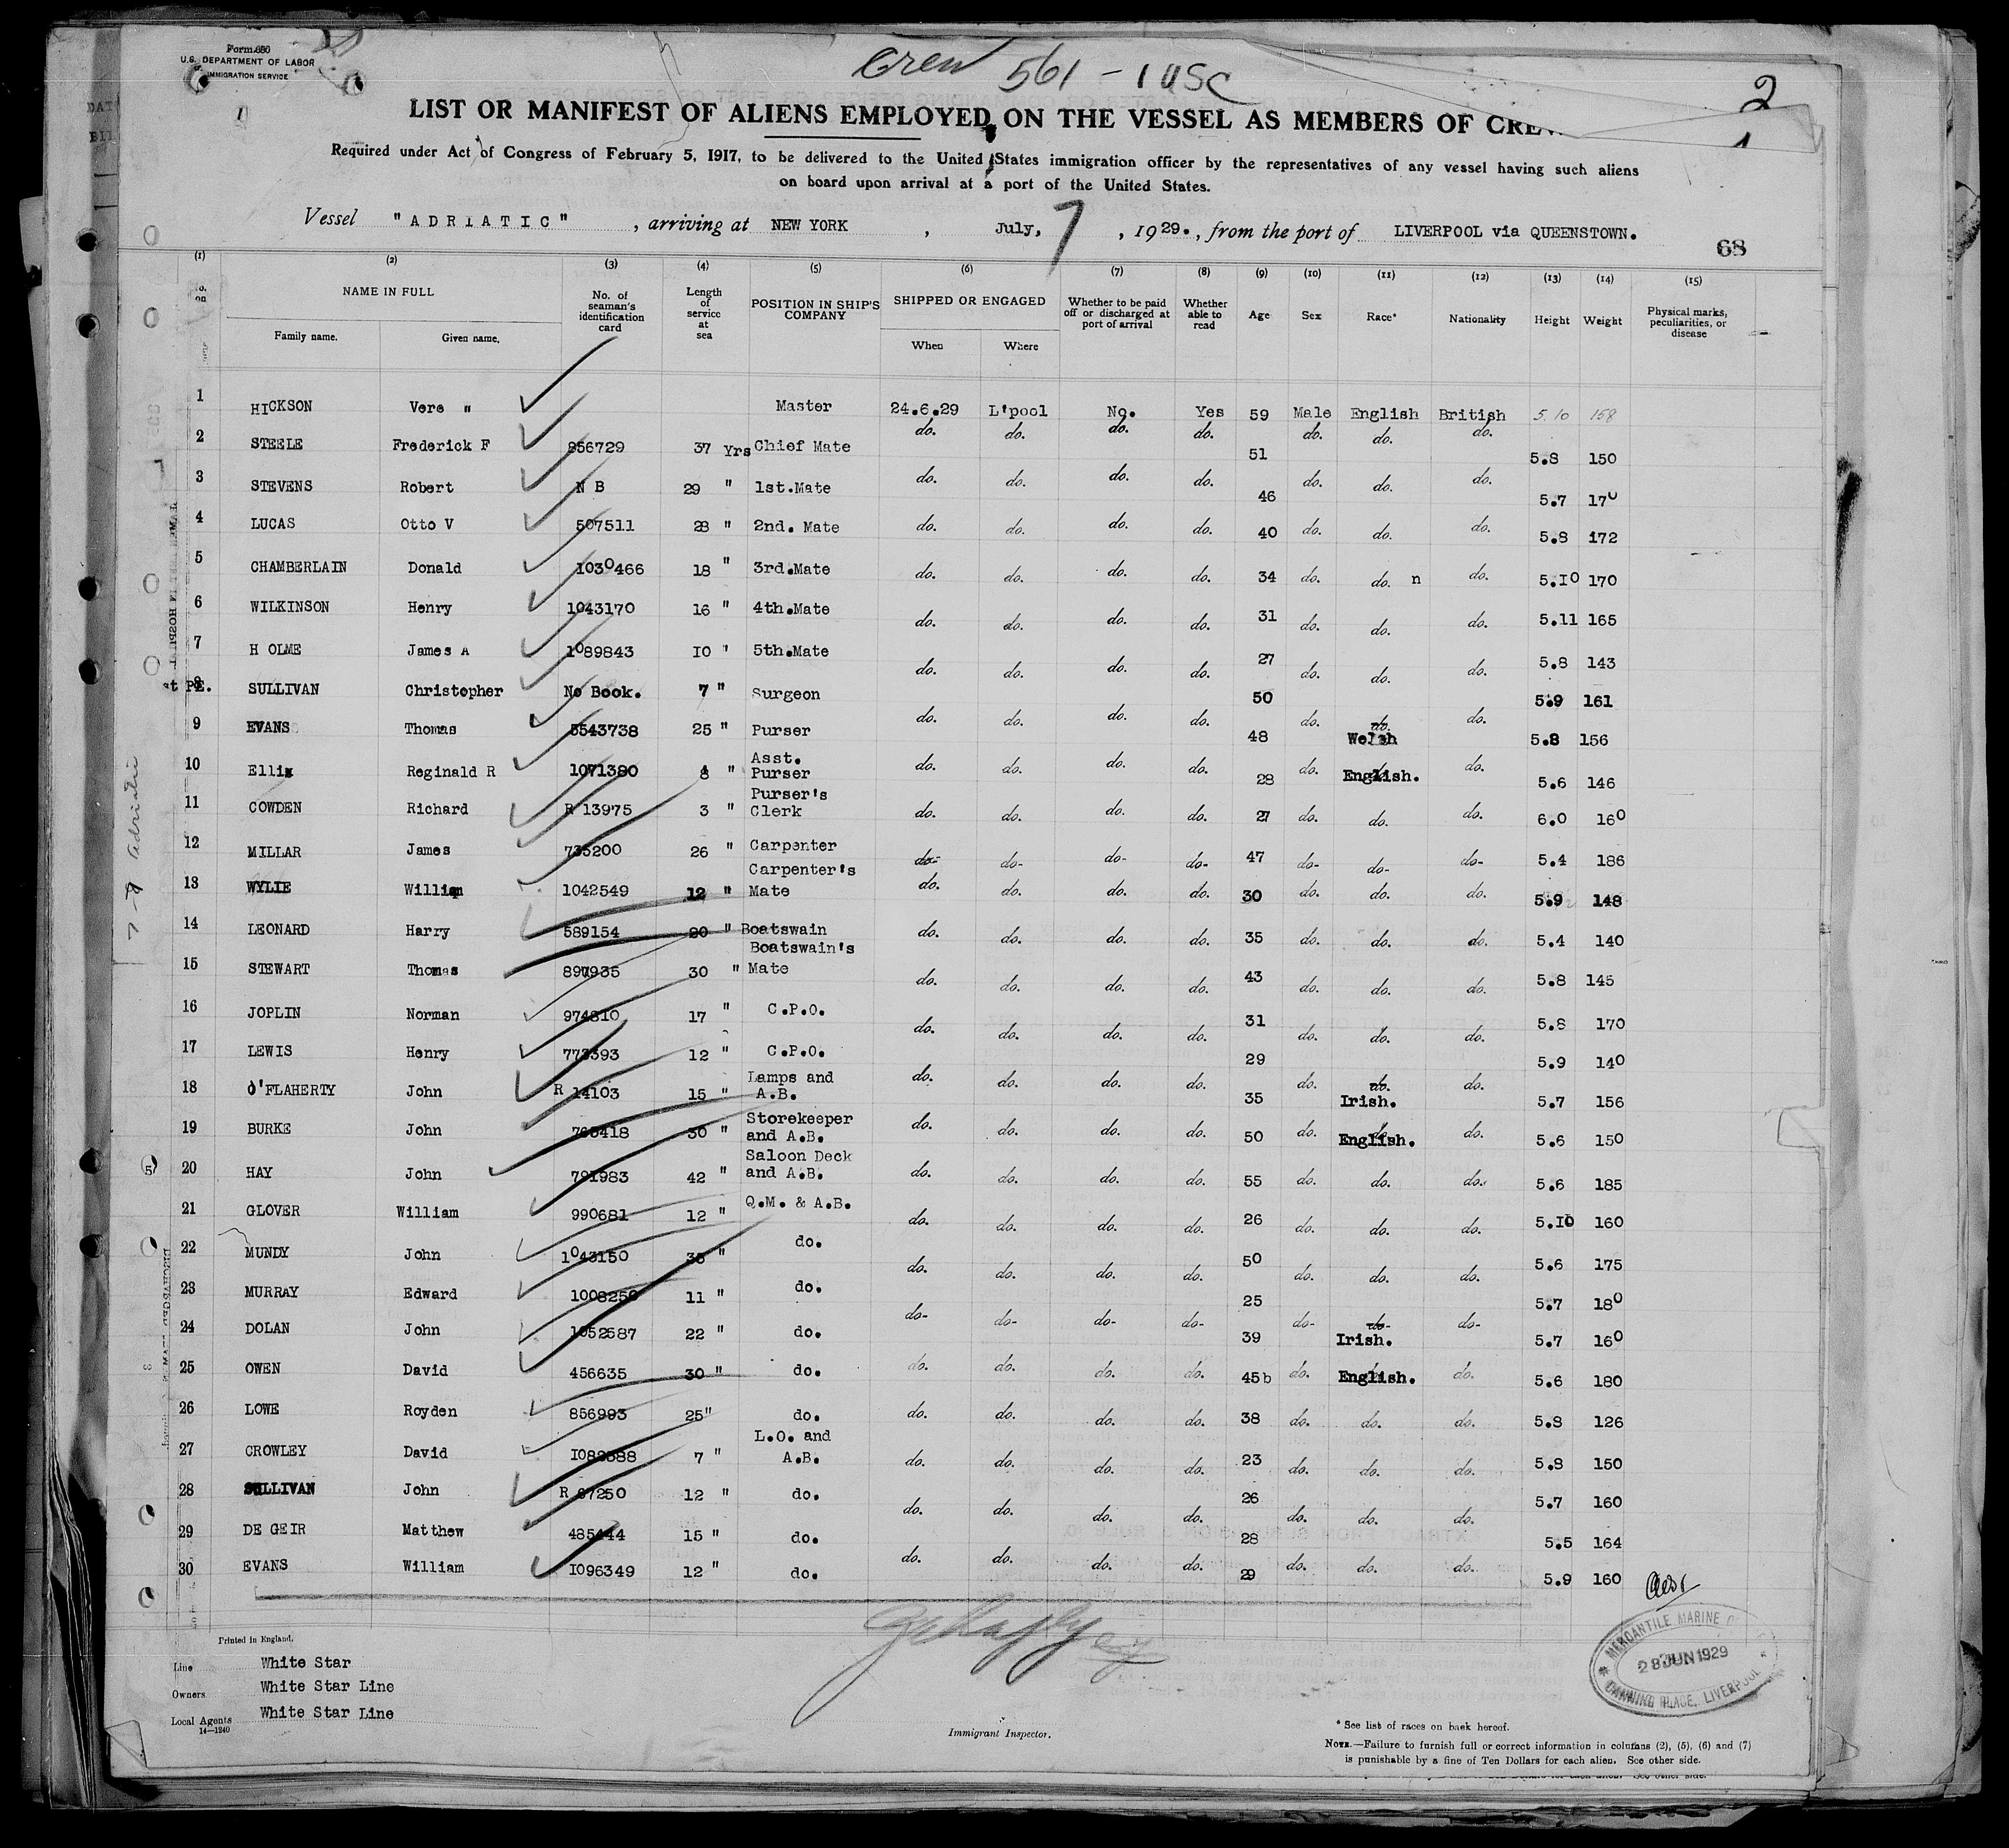 Form 680
U.S. DEPARTMENT OF LABOR
IMMIGRATION SERVICE
Crew 561 - 1 USC
2
1
LIST OR MANIFEST OF ALIENS EMPLOYED ON THE VESSEL AS MEMBERS OF CREW
Required under Act of Congress of February 5, 1917, to be delivered to the United States immigration officer by the representatives of any vessel having such aliens
on board upon arrival at a port of the United States.
Vessel "ADRIATIC", arriving at NEW YORK, July, 7, 1929., from the port of LIVERPOOL via QUEENSTOWN.
68
(1) (2) (3) (4) (5) (6) (7) (8) (9) (10) (11) (12) (13) (14) (15)
NAME IN FULL Family name. Given name. No. of seaman's identification card Length of service at sea POSITION IN SHIP'S COMPANY SHIPPED OR ENGAGED When Where Whether to be paid off or discharged at port of arrival Whether able to read Age Sex Race* Nationality Height Weight Physical marks, peculiarities, or disease
1 HICKSON Vere " Master 24.6.29 L'pool No. Yes 59 Male English British 5.10 158
2 STEELE Frederick F 856729 37 Yrs Chief Mate do. do. do. do. 51 do. do. do. 5.8 150
3 STEVENS Robert N B 29 " 1st.Mate do. do. do. do. 46 do. do. do. 5.7 170
4 LUCAS Otto V 507511 28 " 2nd. Mate do. do. do. do. 40 do. do. do. 5.8 172
5 CHAMBERLAIN Donald 1030466 18 " 3rd.Mate do. do. do. do. 34 do. do. n do. 5.10 170
6 WILKINSON Henry 1043170 16 " 4th.Mate do. do. do. do. 31 do. do. do. 5.11 165
7 H OLME James A 1089843 10 ' 5th.Mate do. do. do. do. 27 do. do. do. 5.8 143
8 SULLIVAN Christopher No Book. 7 " Surgeon do. do. do. do. 50 do. do. do. 5.9 161
9 EVANS Thomas 5543738 25 " Purser do. do. do. do. 48 do. do. Welsh do. 5.8 156
10 Ellis Reginald R 1071380 8 " Asst. Purser do. do. do. do. 28 do. English. do. 5.6 146
11 COWDEN Richard R 13975 3 " Purser's Clerk do. do. do. do. 27 do. do. do. 6.0 160
12 MILLAR James 735200 26 " Carpenter do- do- do- do- 47 do- do- do- 5.4 186
13 WYLIE William 1042549 12 " Carpenter's Mate do. do. do. do. 30 do. do. do. 5.9 148
14 LEONARD Harry 589154 20 " Boatswain do. do. do. do. 35 do. do. do. 5.4 140
15 STEWART Thomas 897935 30 " Boatswain's Mate do. do. do. do. 43 do. do. do. 5.8 145
16 JOPLIN Norman 974810 17 " C.P.O. do. do. do. do. 31 do. do. do. 5.8 170
17 LEWIS Henry 773393 12 " C.P.O. do. do. do. do. 29 do. do. do. 5.9 140
18 O'FLAHERTY John R 14103 15 " Lamps and A.B. do. do. do. do. 35 do. do. Irish. do. 5.7 156
19 BURKE John 765418 30 " Storekeeper and A.B. do. do. do. do. 50 do. English. do. 5.6 150
20 HAY John 791983 42 " Saloon Deck and A.B. do. do. do. do. 55 do. do. do. 5.6 185
21 GLOVER William 990681 12 " Q.M. & A.B. do. do. do. do. 26 do. do. do. 5.10 160
22 MUNDY John 1043150 35 " do. do. do. do. do. 50 do. do. do. 5.6 175
23 MURRAY Edward 1008250 11 " do. do. do. do. do. 25 do. do. do. 5.7 180
24 DOLAN John 1052587 22 " do. do- do- do- do- 39 do- do- Irish. do- 5.7 160
25 OWEN David 456635 30 " do. do. do. do. do. 45b do. English. do. 5.6 180
26 LOWE Royden 856993 25" do. do. do. do. do. 38 do. do. do. 5.8 126
27 CROWLEY David 7 " L.O. and A.B. do. do. do. do. 23 do. do. do. 5.8 150
28 SULLIVAN John R 67250 12 " do. do. do. do. do. 26 do. do. do. 5.7 160
29 DE GEIR Matthew 485444 15 " do. do. do. do. do. 28 do. do. do. 5.5 164
30 EVANS William 1096349 12 " do. do. do. do. do. 29 do. do. do. 5.9 160
7-7 Adriatic
Printed in England.
Line White Star
Owners White Star Line
Local Agents White Star Line
14—1240
Immigrant Inspector.
MERCANTILE MARINE
28 JUN 1929
CANNING PLACE, LIVERPOOL
* See list of races on back hereof.
NOTE.—Failure to furnish full or correct information in columns (2), (5), (6) and (7)
is punishable by a fine of Ten Dollars for each alien. See other side.